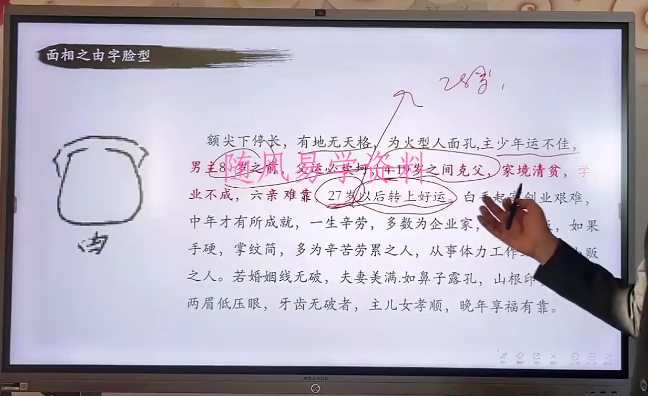 面相之由字脸型
28岁,
额尖下停长，有地无天格，为火型人面孔,主少年运不佳，
男主8岁之前，父运必坎坷，14-19岁之间克父，家境清贫，学
业不成，六亲难靠，27岁以后转上好运。白手起家创业艰难，
中年才有所成就，一生辛劳，多数为企业家，如果
手硬，掌纹简，多为辛苦劳累之人，从事体力工作
贩
之人。若婚姻线无破，夫妻美满.如鼻子露孔，山根印
两眉低压眼，牙齿无破者，主儿女孝顺，晚年享福有靠。
由
随风易学资料